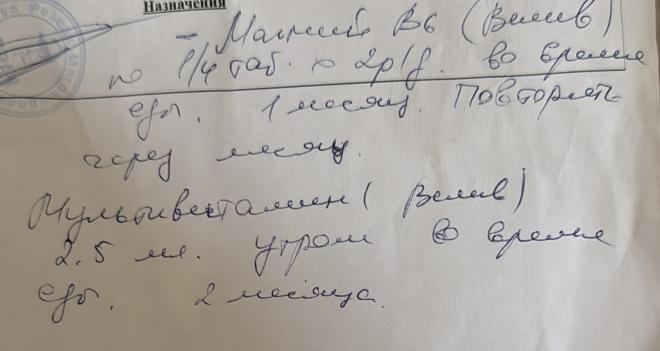 Назначения
- Магний B6 (Велив)
по 1/4 таб. x 2р/д. во время
еды. 1 месяц. Повторять
через месяц.
Мультивитамин (Велив)
2.5 мл. утром во время
еды. 2 месяца.